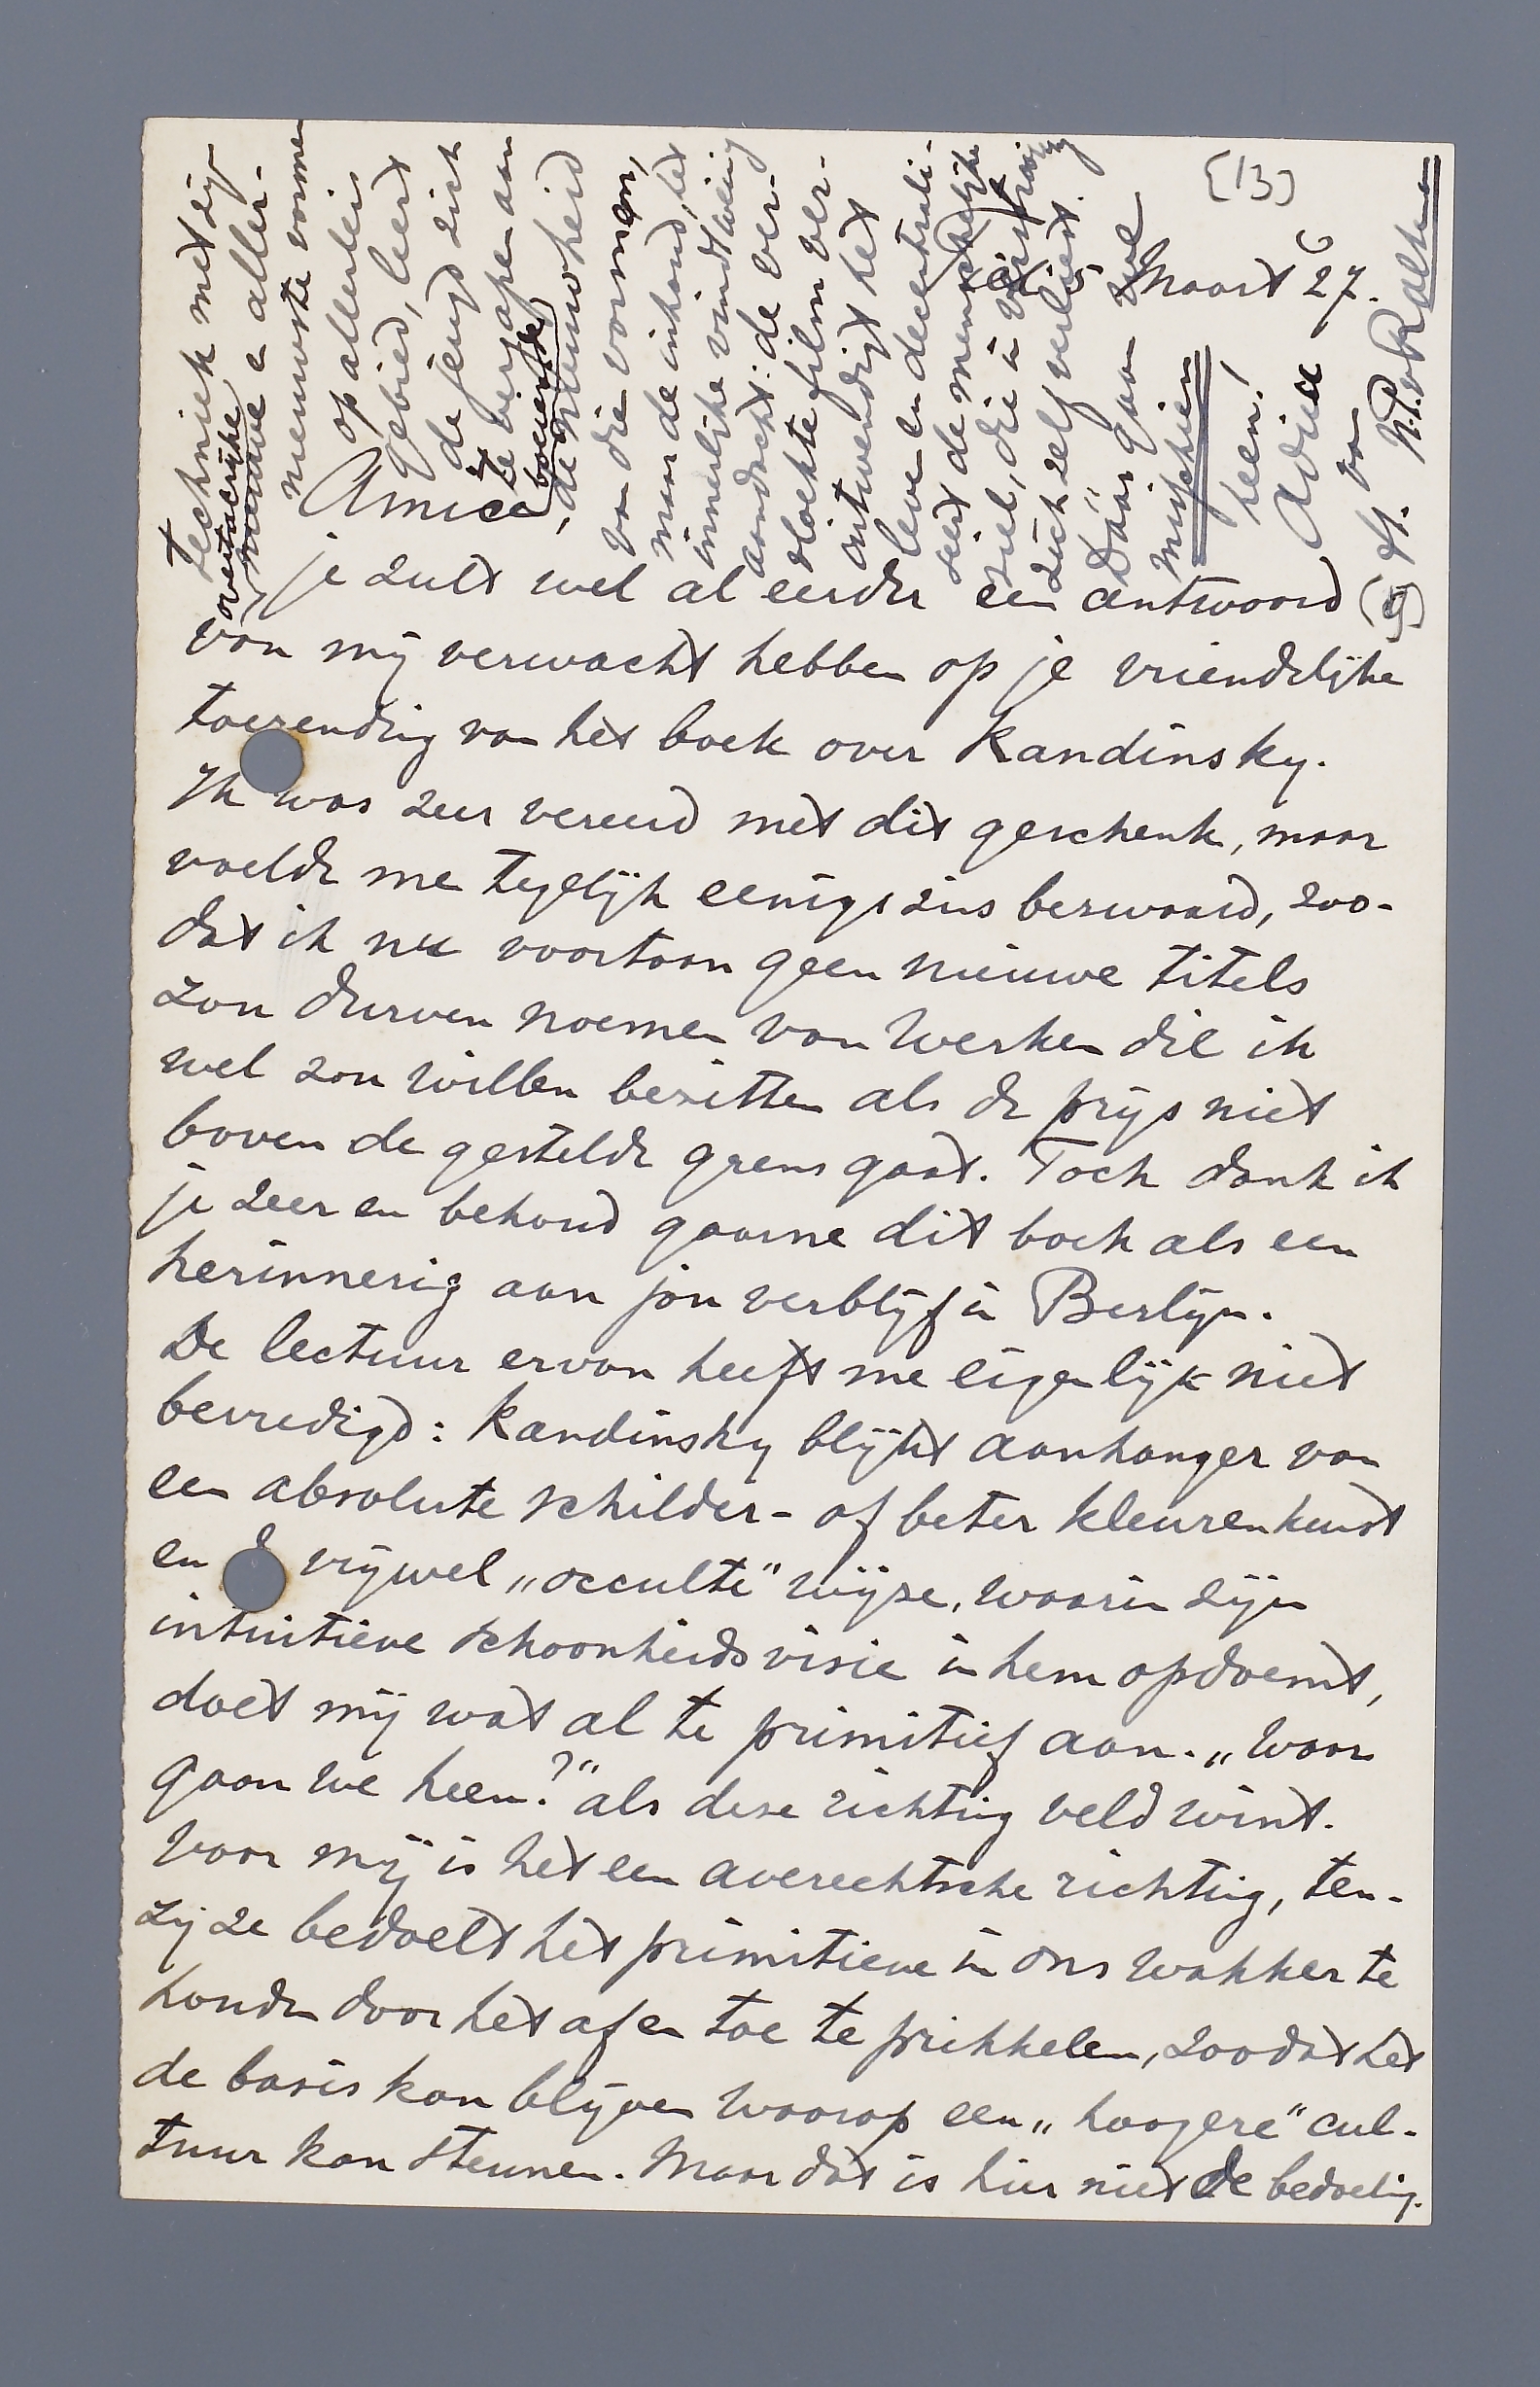 (13)
5 Maart 27.
Amice,
je zult wel al eerder een antwoord
van mij verwacht hebben op je vriendelijke
toezending van het boek over Kandinsky.
Ik was zeer vereerd met dit geschenk, maar
voelde me tegelijk eenigszins bezwaard, zoo-
dat ik nu voortaan geen nieuwe titels
zou durven noemen van werken die ik
wel zou willen bezitten als de prijs niet
boven de gestelde grens gaat. Toch dank ik
je zeer en behoud gaarne dit boek als een
herinnering aan jou verblijf in Berlijn.
De lectuur ervan heeft me eigenlijk niet
bevredigd: Kandinsky blijkt aanhanger van
een absolute schilder- of beter kleurenkunst
en vrijwel „occulte" wijze, waarin zijn
intuitieve schoonheidsvisie in hem opdoemt,
doet mij wat al te primitief aan. „Waar
gaan we heen?" als deze richting veld wint.
Voor mij is het een averechtsche richting, ten-
zij ze bedoelt het primitieve in ons wakker te
houden door het af en toe te prikkelen, zoodat het
de basis kan blijven waarop een „hoogere" cul-
tuur kan steunen. Maar dat is hier niet de bedoeling.
techniek met zijn
nieuwe en aller-
nieuwste vormen
op allerlei
gebied, leert
de jeugd zich
te vergapen aan
de boeiende nieuwheid
van die vormen,
maar de inhoud, het
innerlijke vindt weinig
aandacht: de ver-
vloekte film ver-
uitwendigt het
leven en decentrali-
seert de menschelijke
ziel, die in verstrooiing
zich zelf verliest.
Dáár gaan we
misschien
heen!
Adieu
van
H.